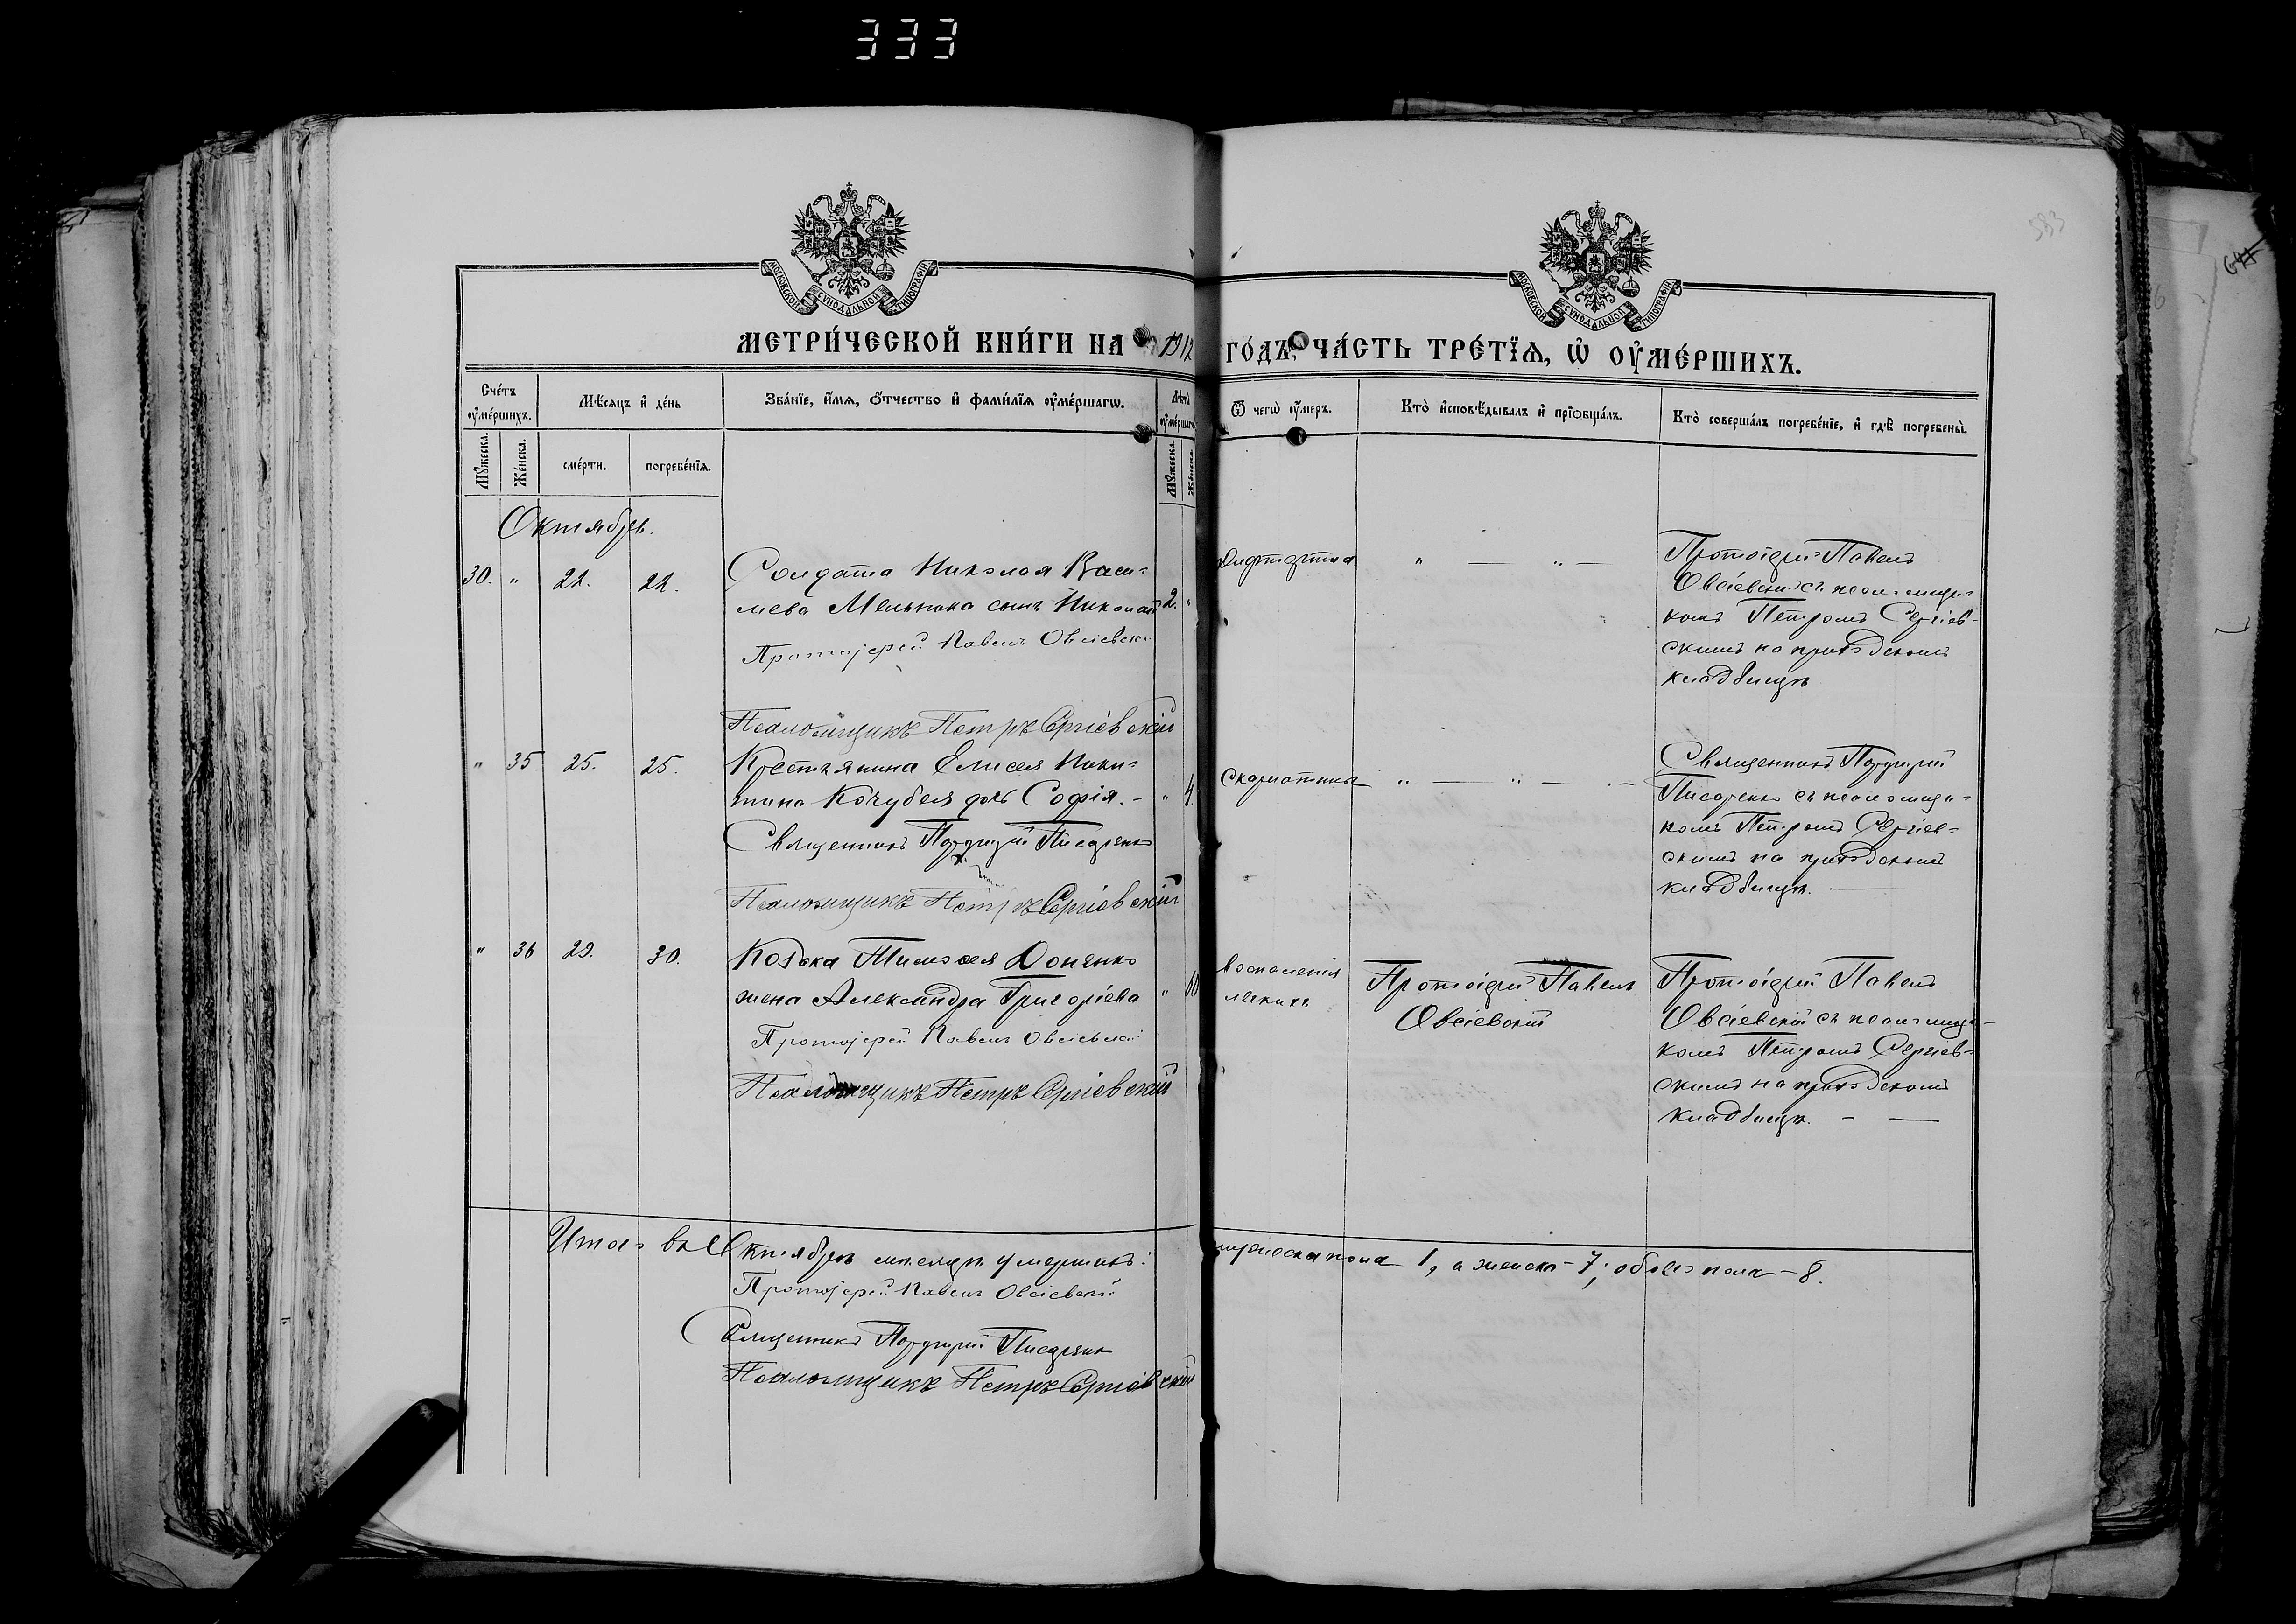 333
533
МОСКОВСКОЙ СѴНОДАЛЬНОЙ ТИПОГРАФІИ
МОСКОВСКОЙ СѴНОДАЛЬНОЙ ТИПОГРАФІИ
МЕТРИ́ЧЕСКОЙ КНИ́ГИ НА 1912 ГО́ДЪ, ЧА́СТЬ ТРЕ́ТЇѦ, Ѡ҆ ОУ҆МЕ́РШИХЪ.
Сче́тъ оу҆ме́ршихъ.
Мѣ́сяцъ и҆ де́нь
Зва́нїе, и҆́мя, ѻ҆́тчество и҆ фами́лїя оу҆ме́ршагѡ.
Лѣ́та оу҆ме́ршагѡ
Ѿ чегѡ̀ оу҆́меръ.
Кто̀ и҆сповѣ́дывалъ и҆ прїѡбща́лъ.
Кто̀ соверша́лъ погребе́нїе, и҆ гдѣ̀ погребены̀.
Мꙋ́жеска.
Же́нска.
сме́рти.
погребе́нїя.
Мꙋ́жеска.
Же́нска.
Октябрь.
30. " 22. 22.
Солдата Николая Васи-
лева Мельника сынъ Николай 2. "
Протоіерей Павелъ Овсіевскій
Псаломщикъ Петръ Сергіевскій
Дифтерита
" — " —
Протоіерей Павелъ
Овсіевскій съ псаломщи-
комъ Петромъ Сергіев-
скимъ на приходскомъ
кладбищѣ
" 35 25. 25.
Крестьянина Елисея Ники-
тина Кочубея дочь Софія. - " 4.
Священникъ Порфирій Писаренко
Псаломщикъ Петръ Сергіевскій
Скарлатины
" — " — " —
Священникъ Порфирій
Писаренко съ псаломщи-
комъ Петромъ Сергіев-
скимъ на приходскомъ
кладбищѣ. —
" 36 29. 30.
Козака Тимофея Доненко
жена Александра Григоріева " 60
Протоіерей Павелъ Овсіевскій
Псаломщикъ Петръ Сергіевскій
Воспаленія
легкихъ
Протоіерей Павелъ
Овсіевскій
Протоіерей Павелъ
Овсіевскій съ псаломщи-
комъ Петромъ Сергіев-
скимъ на приходскомъ
кладбищѣ. - —
Итого въ Октябрѣ мѣсяцѣ умершихъ: мужеска пола 1, а женска - 7; обоего пола - 8.
Протоіерей Павелъ Овсіевскій
Священникъ Порфирій Писаренко
Псаломщикъ Петръ Сергіевскій